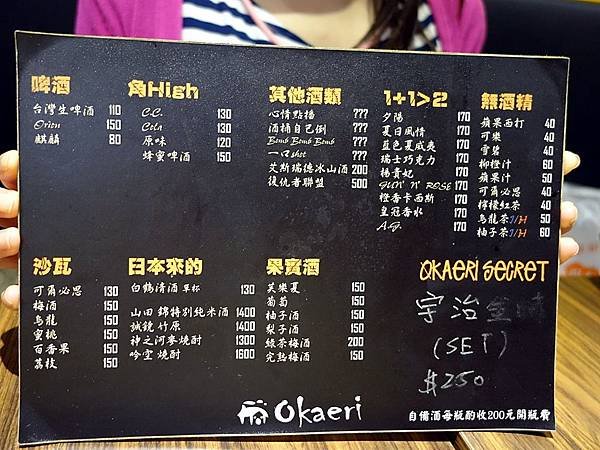 啤酒
台灣生啤酒 110
Orion 150
麒麟 80
角High
C.C. 130
Cola 130
原味 120
蜂蜜啤酒 150
其他酒類
心情點播 ???
酒桶自己倒 ???
Bomb Bomb Bomb ???
一口shot ???
艾斯瑞德冰山酒 200
復仇者聯盟 500
1+1>2
夕陽 170
夏日風情 170
藍色夏威夷 170
瑞士巧克力 170
楊貴妃 170
GUN' N' ROSE 170
橙香卡西斯 170
皇冠香水 170
A.G. 170
無酒精
蘋果西打 40
可樂 40
雪碧 40
柳橙汁 40
蘋果汁 40
可爾必思 40
檸檬紅茶 40
烏龍茶I/H 50
柚子茶I/H 60
沙瓦
可爾必思 130
梅酒 150
烏龍 150
蜜桃 150
百香果 150
荔枝 150
日本來的
白鶴清酒 單杯 130
山田 錦特別純米酒 1400
誠鏡 竹原 1400
神之河麥燒酎 1300
吟空 燒酎 1600
果實酒
芙樂夏 150
葡萄 150
柚子酒 150
梨子酒 150
綠茶梅酒 200
完熟梅酒 150
OKAERI SECRET
宇治金時
(SET)
$250
Okaeri
自備酒每瓶酌收200元開瓶費